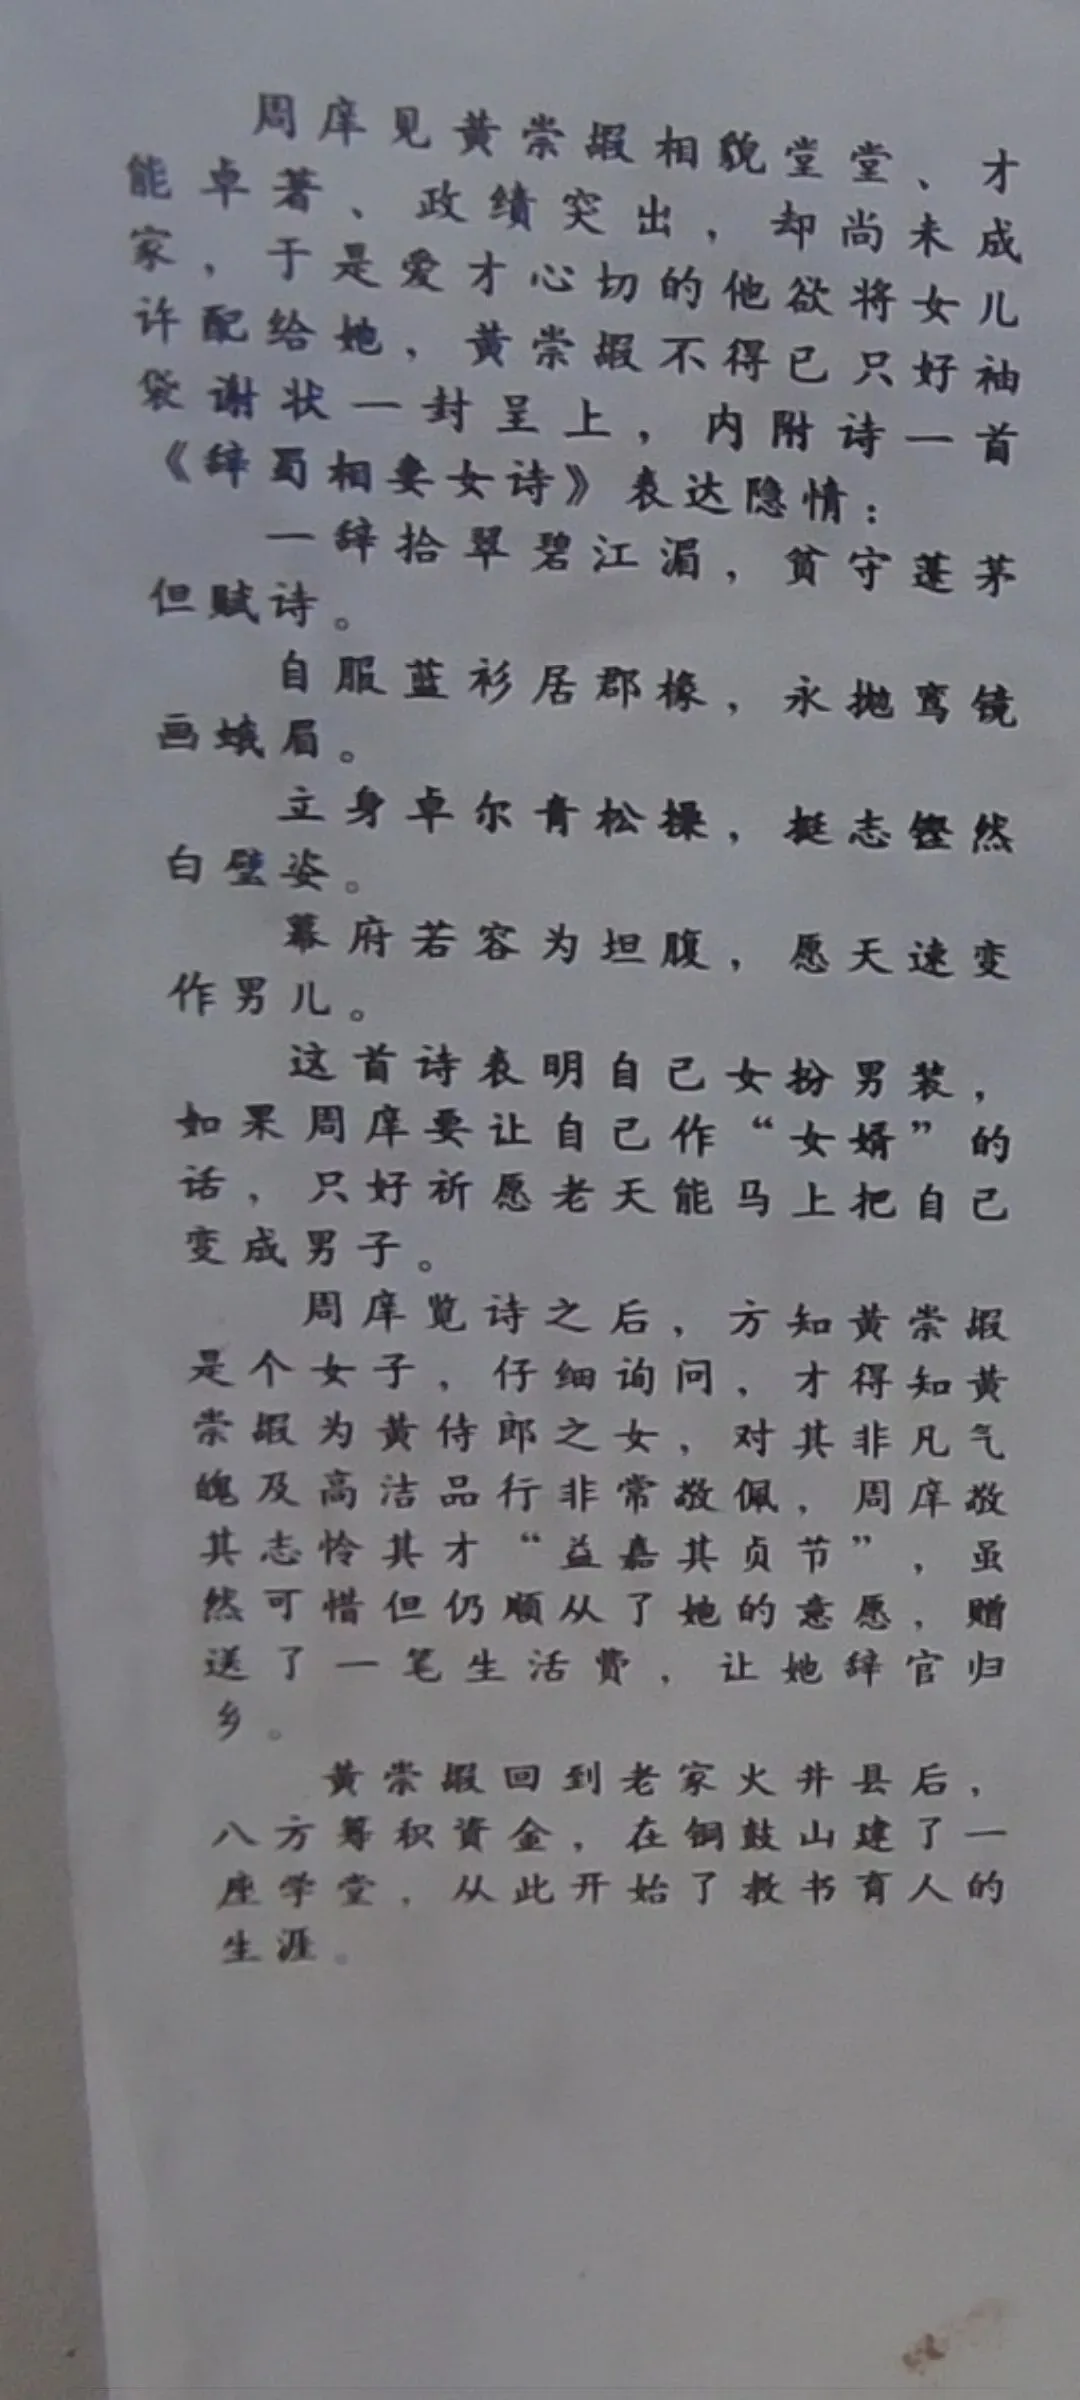 周庠见黄崇嘏相貌堂堂、才
能卓著、政绩突出，却尚未成
家，于是爱才心切的他欲将女儿
许配给她，黄崇嘏不得已只好袖
袋谢状一封呈上，内附诗一首
《辞蜀相妻女诗》表达隐情：
一辞拾翠碧江湄，贫守蓬茅
但赋诗。
自服蓝衫居郡椽，永抛鸾镜
画蛾眉。
立身卓尔青松操，挺志铿然
白璧姿。
幕府若容为坦腹，愿天速变
作男儿。
这首诗表明自己女扮男装，
如果周庠要让自己作“女婿”的
话，只好祈愿老天能马上把自己
变成男子。
周庠览诗之后，方知黄崇嘏
是个女子，仔细询问，才得知黄
崇嘏为黄侍郎之女，对其非凡气
魄及高洁品行非常敬佩，周庠敬
其志怜其才“益嘉其贞节”，虽
然可惜但仍顺从了她的意愿，赠
送了一笔生活费，让她辞官归
乡。
黄崇嘏回到老家火井县后，
八方筹积资金，在铜鼓山建了一
座学堂，从此开始了教书育人的
生涯。